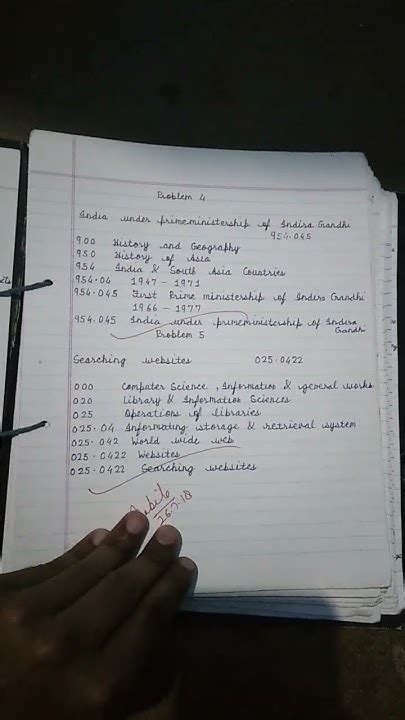 Problem 4
India under primeministership of Indira Gandhi
954.045
900 History and Geography
950 History of Asia
954 India & South Asia Countries
954.04 1947 - 1971
954.045 First Prime ministership of Indira Gandhi
1966 - 1977
954.045 India under primeministership of Indira
Gandhi
Problem 5
Searching websites 025.0422
000 Computer Science, Information & general works
020 Library & Information Sciences
025 Operations of libraries
025.04 Informating storage & retrieval system
025.042 World wide web
025.0422 Websites
025.0422 Searching websites
26.7.18